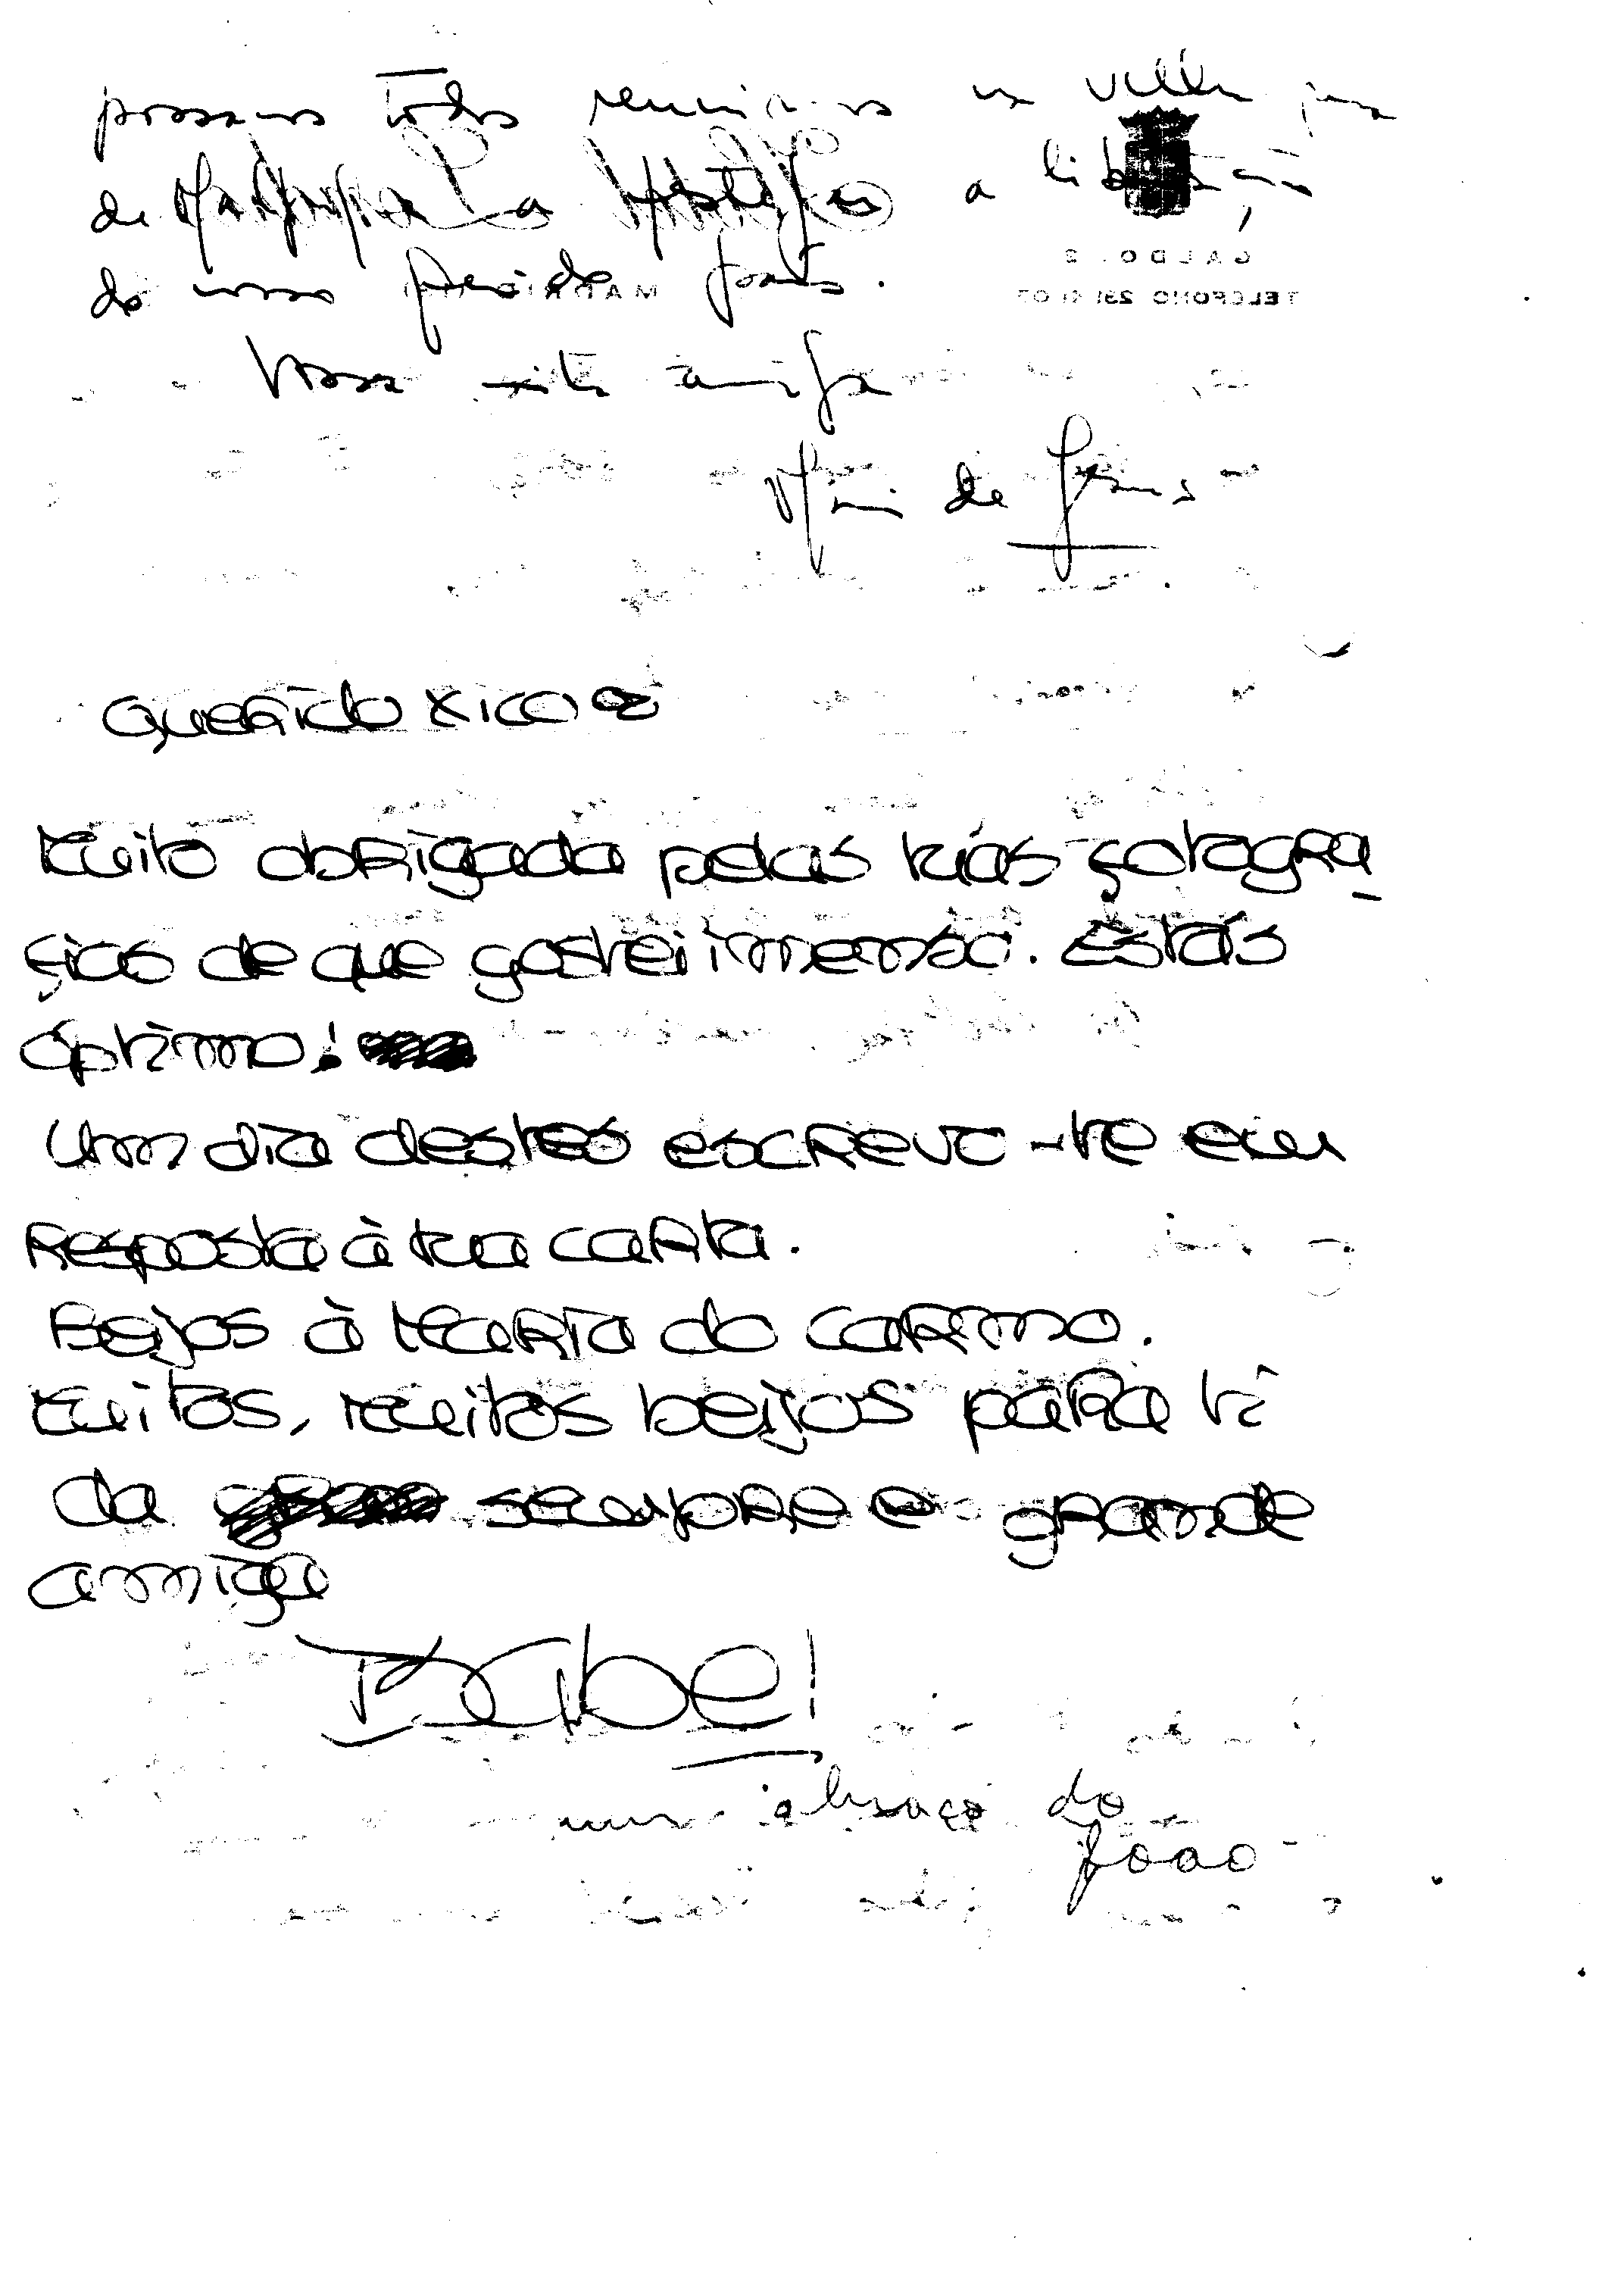 possamos todos reunirmos na villa para
de a
do nosso querido país.
Vossa amiga
de
GALDO, 2
TELEFONO 231 41 07
MADRID
Querido Xico
Muito obrigada pelas tuas fotogra-
fias de que gostei imenso. Estás
óptimo!
Um dia destes escrevo-te em
Resposta à tua carta.
Beijos à Maria do Carmo.
Muitos, muitos beijos para ti
da sempre e grande
amiga
Isabel
um abraço do
João